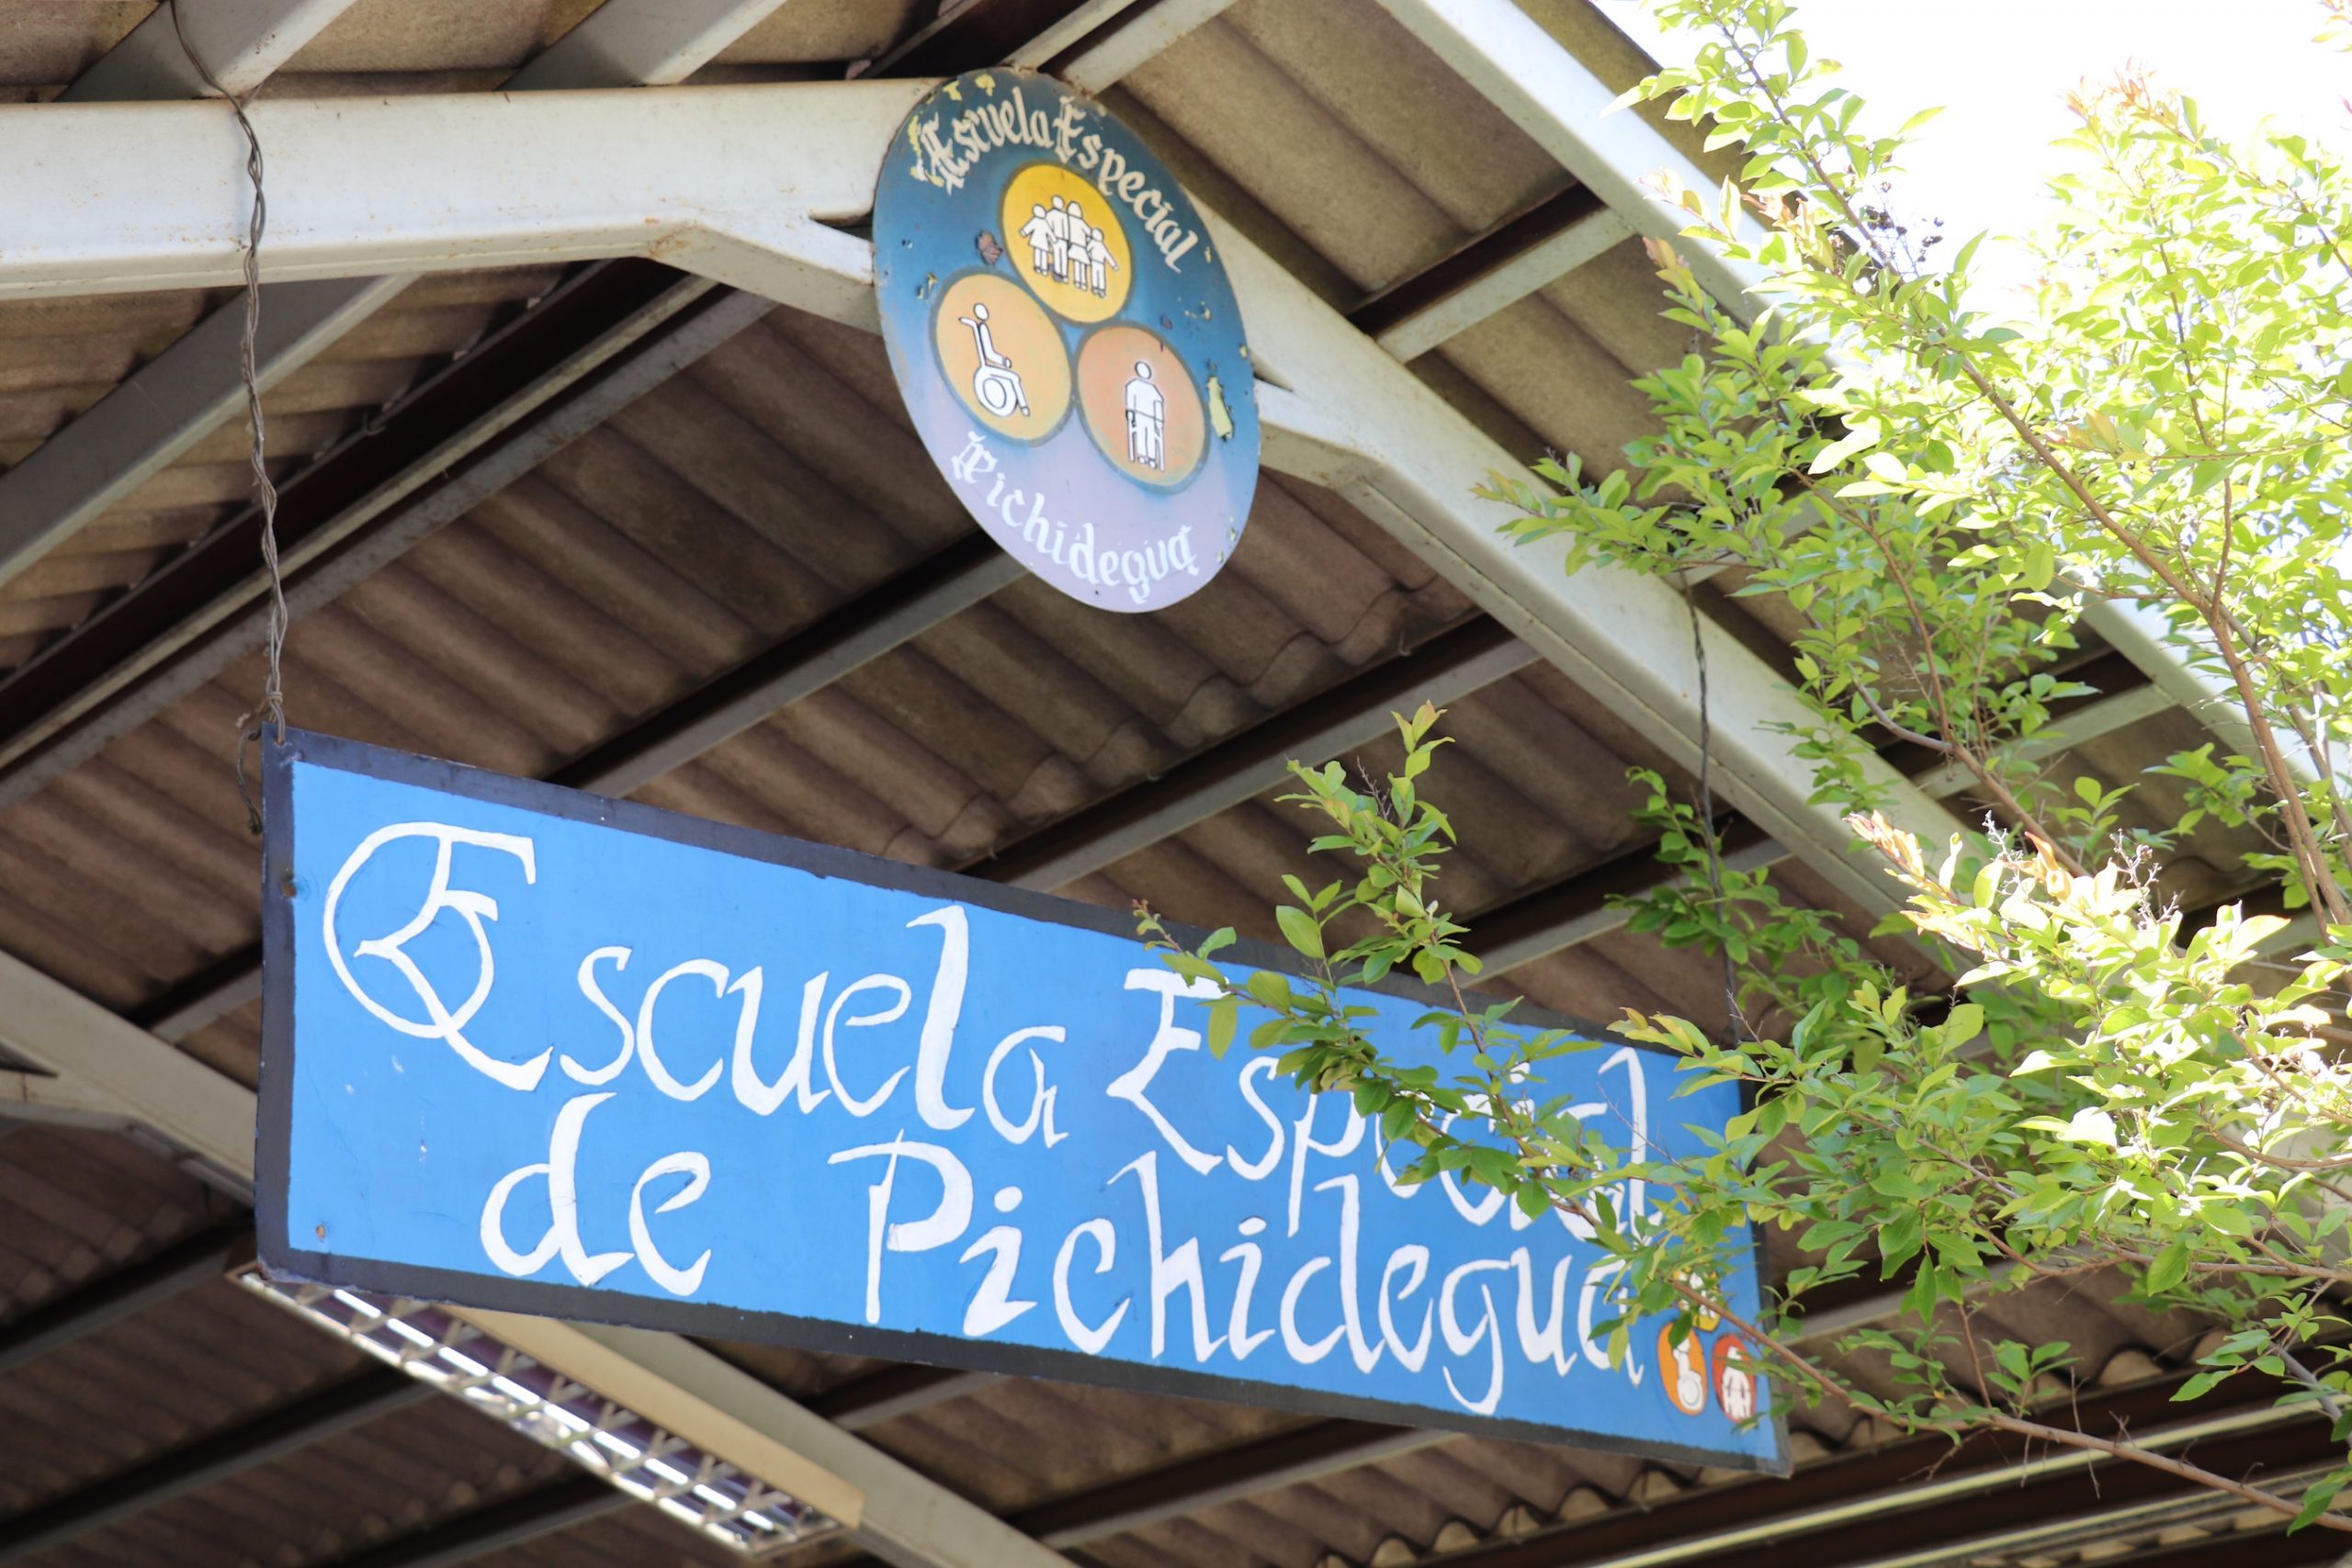 Escuela Especial
Pichidegua
Escuela Especial
de Pichidegua